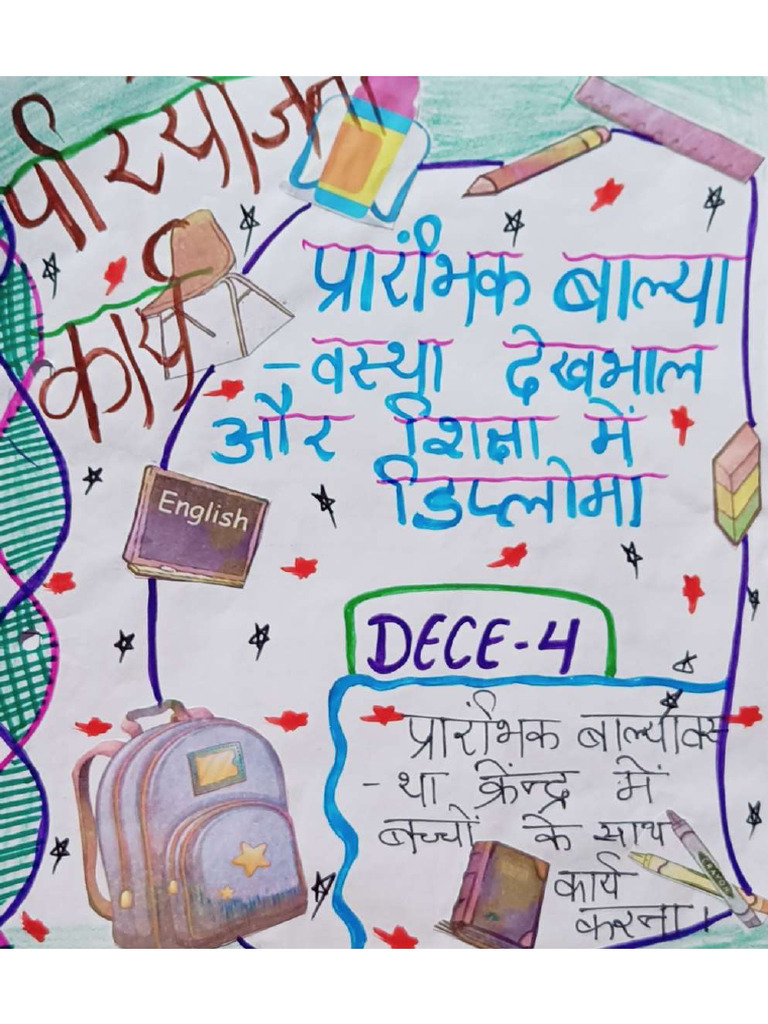 परियोजना
कार्य
प्रारंभिक बाल्या
-वस्था देखभाल
और शिक्षा में
डिप्लोमा
English
DECE-4
प्रारंभिक बाल्यावस्
-था केन्द्र में
बच्चों के साथ
कार्य
करना।
CRAYON